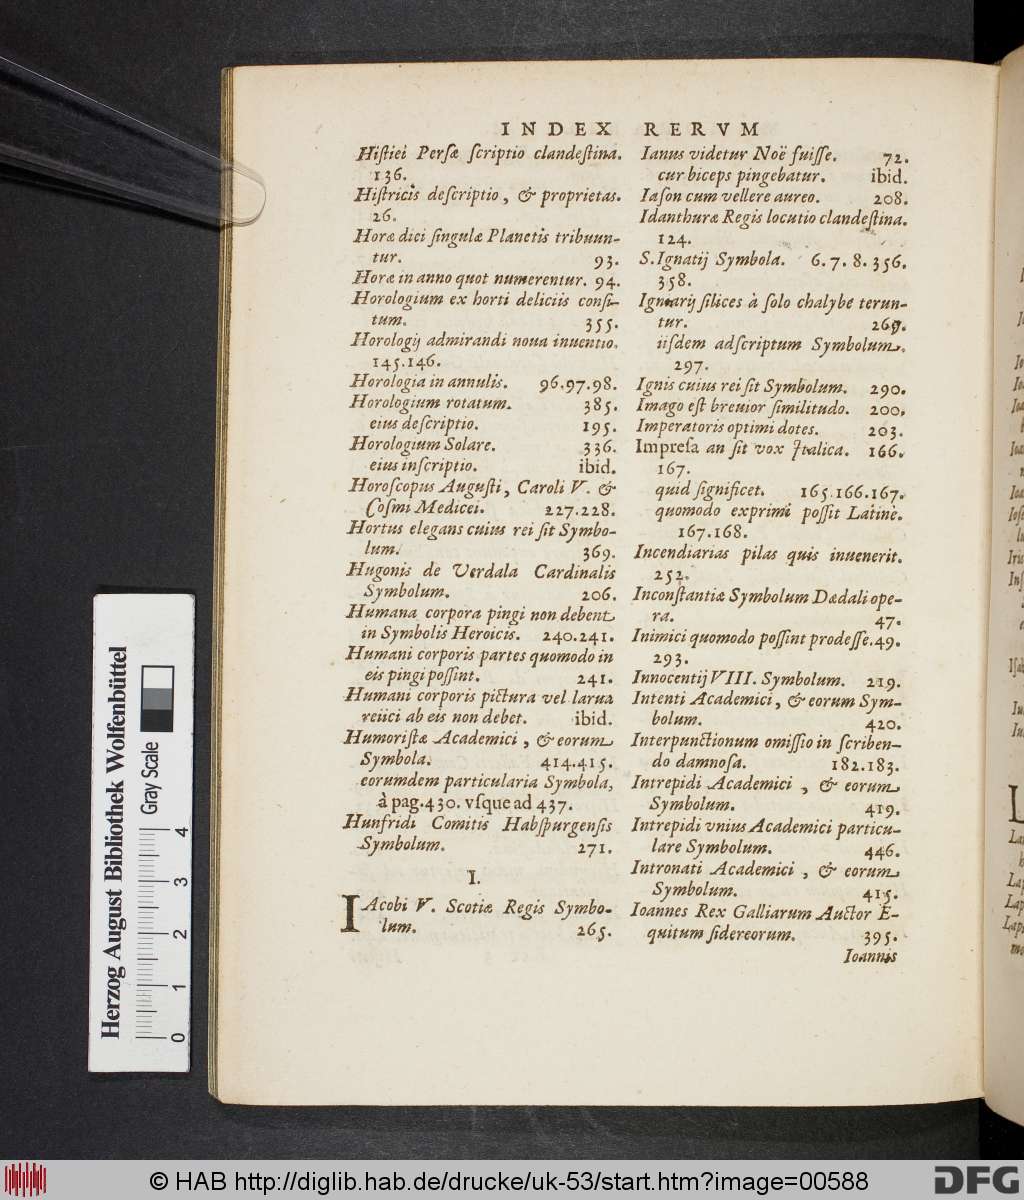 INDEX RERVM
Histiei Persæ scriptio clandestina.
136.
Histricis descriptio, & proprietas.
26.
Horæ diei singulæ Planetis tribuun-
tur. 93.
Horæ in anno quot numerentur. 94.
Horologium ex horti deliciis consi-
tum. 355.
Horologij admirandi noua inuentio.
145.146.
Horologia in annulis. 96.97.98.
Horologium rotatum. 385.
eius descriptio. 195.
Horologium Solare. 336.
eius inscriptio. ibid.
Horoscopus Augusti, Caroli V. &
Cosmi Medicei. 227.228.
Hortus elegans cuius rei sit Symbo-
lum. 369.
Hugonis de Verdala Cardinalis
Symbolum. 206.
Humana corpora pingi non debent
in Symbolis Heroicis. 240.241.
Humani corporis partes quomodo in
eis pingi possint. 241.
Humani corporis pictura vel larua
reiici ab eis non debet. ibid.
Humoristæ Academici, & eorum
Symbola. 414.415.
eorumdem particularia Symbola,
à pag.430. vsque ad 437.
Hunfridi Comitis Habspurgensis
Symbolum. 271.
I.
IAcobi V. Scotiæ Regis Symbo-
lum. 265.
Ianus videtur Noë fuisse. 72.
cur biceps pingebatur. ibid.
Iason cum vellere aureo. 208.
Idanthuræ Regis locutio clandestina.
124.
S. Ignatij Symbola. 6.7.8.356.
358.
Igniarij silices à solo chalybe terun-
tur. 269.
iisdem adscriptum Symbolum.
297.
Ignis cuius rei sit Symbolum. 290.
Imago est breuior similitudo. 200.
Imperatoris optimi dotes. 203.
Impresa an sit vox Italica. 166.
167.
quid significet. 165.166.167.
quomodo exprimi possit Latinè.
167.168.
Incendiarias pilas quis inuenerit.
252.
Inconstantiæ Symbolum Dædali ope-
ra. 47.
Inimici quomodo possint prodesse. 49.
293.
Innocentij VIII. Symbolum. 219.
Intenti Academici, & eorum Sym-
bolum. 420.
Interpunctionum omissio in scriben-
do damnosa. 182.183.
Intrepidi Academici, & eorum
Symbolum. 419.
Intrepidi vnius Academici particu-
lare Symbolum. 446.
Intronati Academici, & eorum
Symbolum. 415.
Ioannes Rex Galliarum Auctor E-
quitum sidereorum. 395.
Ioannis
Herzog August Bibliothek Wolfenbüttel
Gray Scale
0 1 2 3 4
© HAB http://diglib.hab.de/drucke/uk-53/start.htm?image=00588
DFG